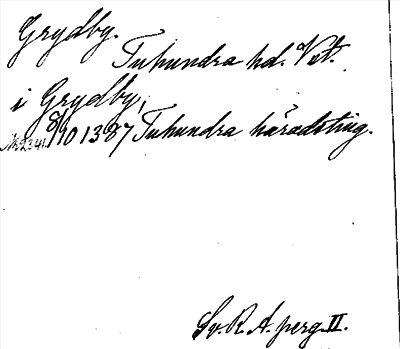 Grydby.
Tuhundra hd. Vst.
i Grydby,
Nr 2341. 8/10 1387 Tuhundra häradsting.
Sv. R. A. perg. II.